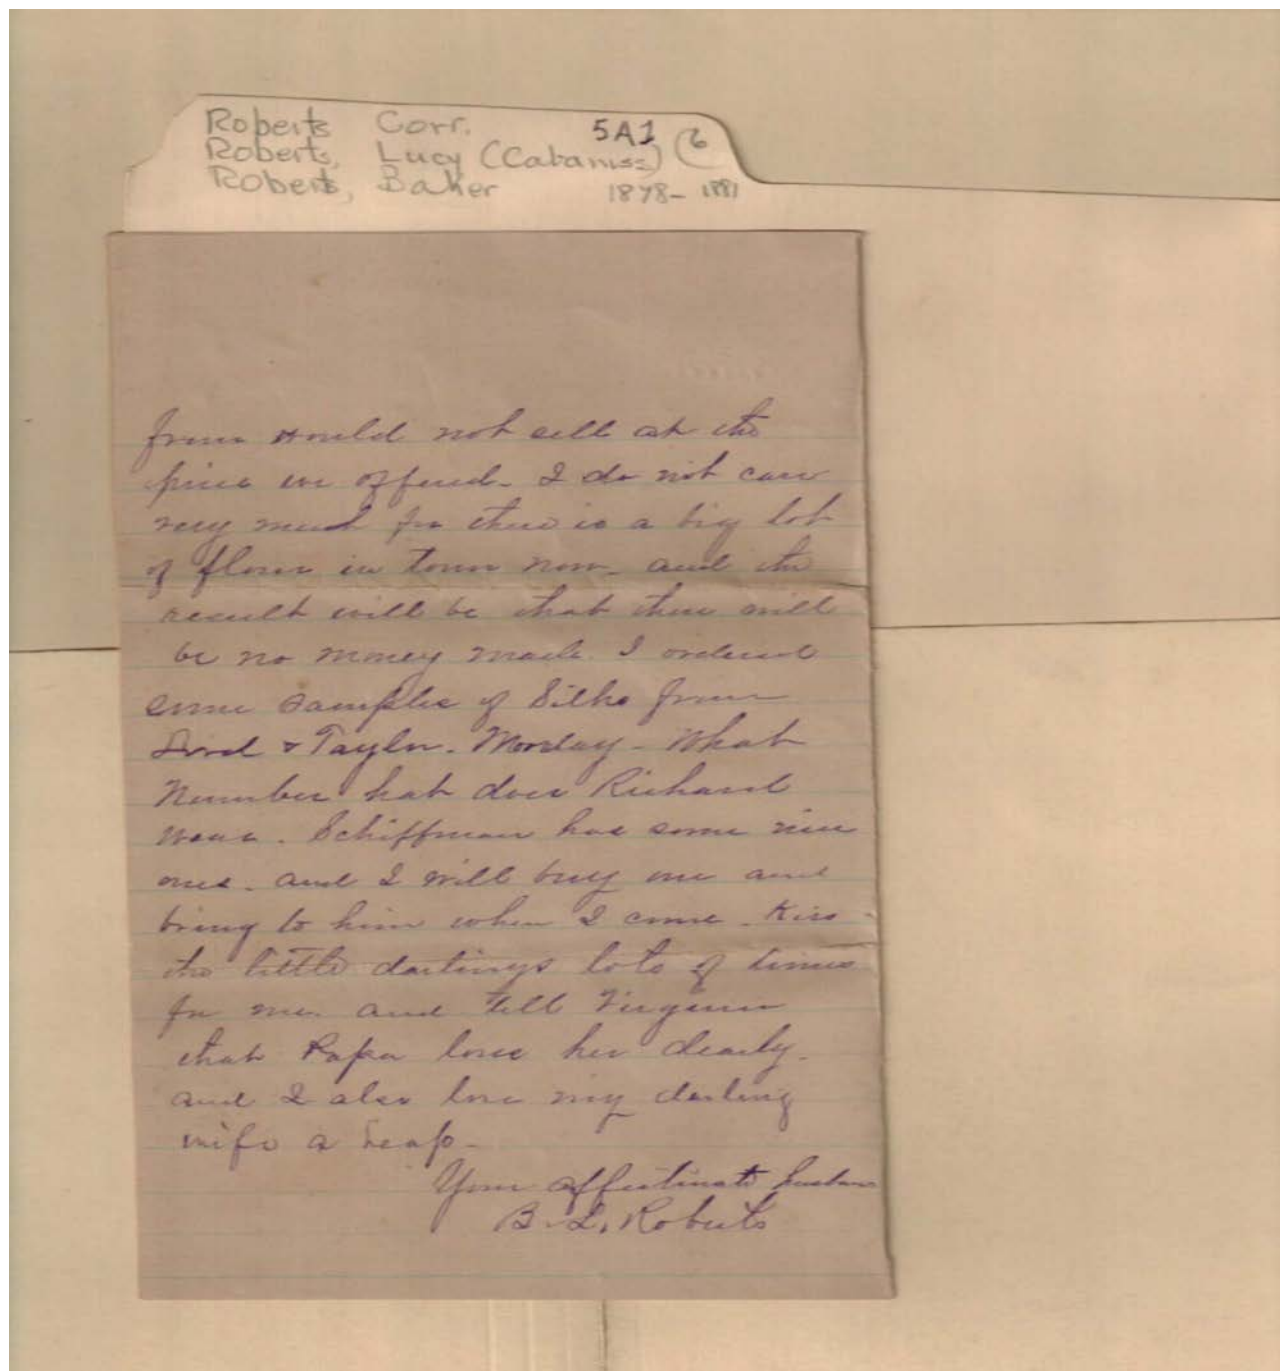 Roberts Corr. 5A1 6
Roberts, Lucy (Cabaniss)
Roberts, Baker 1878-1881
would not sell at the
price we offered - I do not care
very much for there is a big lot
of flour in town now - and the
result will be that there will
be no money made. I ordered
some samples of Silks from
Lord & Taylor - Monday - What
Number hat does Richard
wear. Schiffman has some nice
ones - and I will buy one and
bring to him when I come - Kiss
the little darlings lots of times
for me and tell
that Papa loves her dearly -
and I also love my darling
wife a heap -
Your affectinate husband
B. L. Roberts